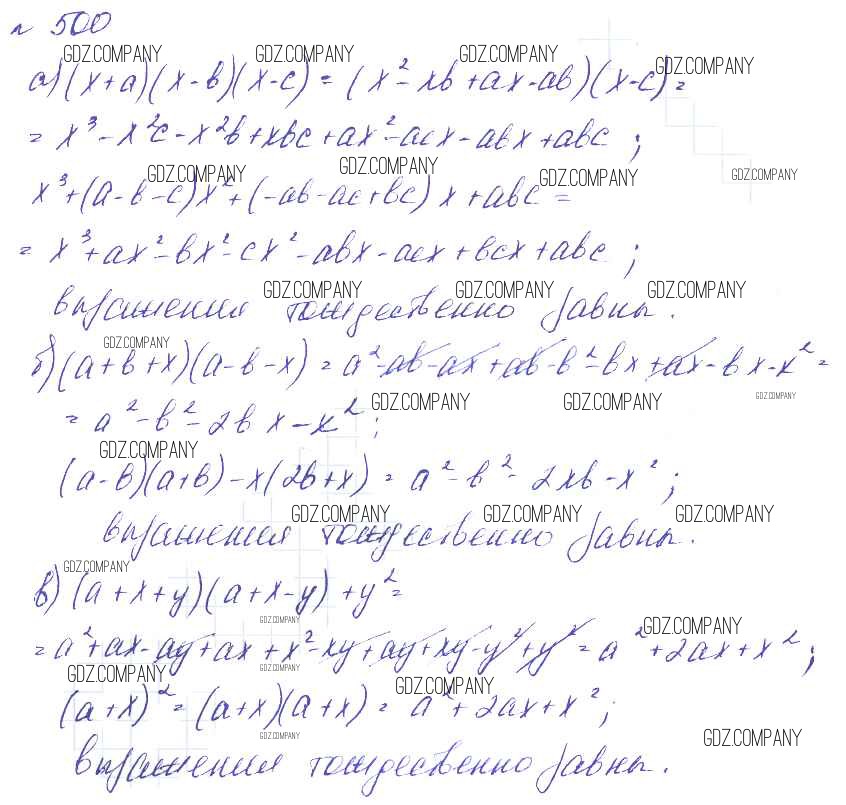 № 500
GDZ.COMPANY GDZ.COMPANY GDZ.COMPANY GDZ.COMPANY
а) (x+a)(x-b)(x-c) = (x²-xb+ax-ab)(x-c) =
= x³-x²c-x²b+xbc+ax²-acx-abx+abc;
GDZ.COMPANY GDZ.COMPANY GDZ.COMPANY GDZ.COMPANY
x³+(a-b-c)x²+(-ab-ac+bc)x+abc =
= x³+ax²-bx²-cx²-abx-acx+bcx+abc;
GDZ.COMPANY GDZ.COMPANY GDZ.COMPANY
выражения тождественно равны.
GDZ.COMPANY
б) (a+b+x)(a-b-x) = a²-ab-ax+ab-b²-bx+ax-bx-x² =
GDZ.COMPANY GDZ.COMPANY GDZ.COMPANY
= a²-b²-2bx-x²;
GDZ.COMPANY
(a-b)(a+b)-x(2b+x) = a²-b²-2xb-x²;
GDZ.COMPANY GDZ.COMPANY GDZ.COMPANY
выражения тождественно равны.
GDZ.COMPANY
в) (a+x+y)(a+x-y)+y² =
GDZ.COMPANY GDZ.COMPANY
= a²+ax-ay+ax+x²-xy+ay+xy-y²+y² = a²+2ax+x²;
GDZ.COMPANY GDZ.COMPANY GDZ.COMPANY
(a+x)² = (a+x)(a+x) = a²+2ax+x²;
GDZ.COMPANY GDZ.COMPANY
выражения тождественно равны.